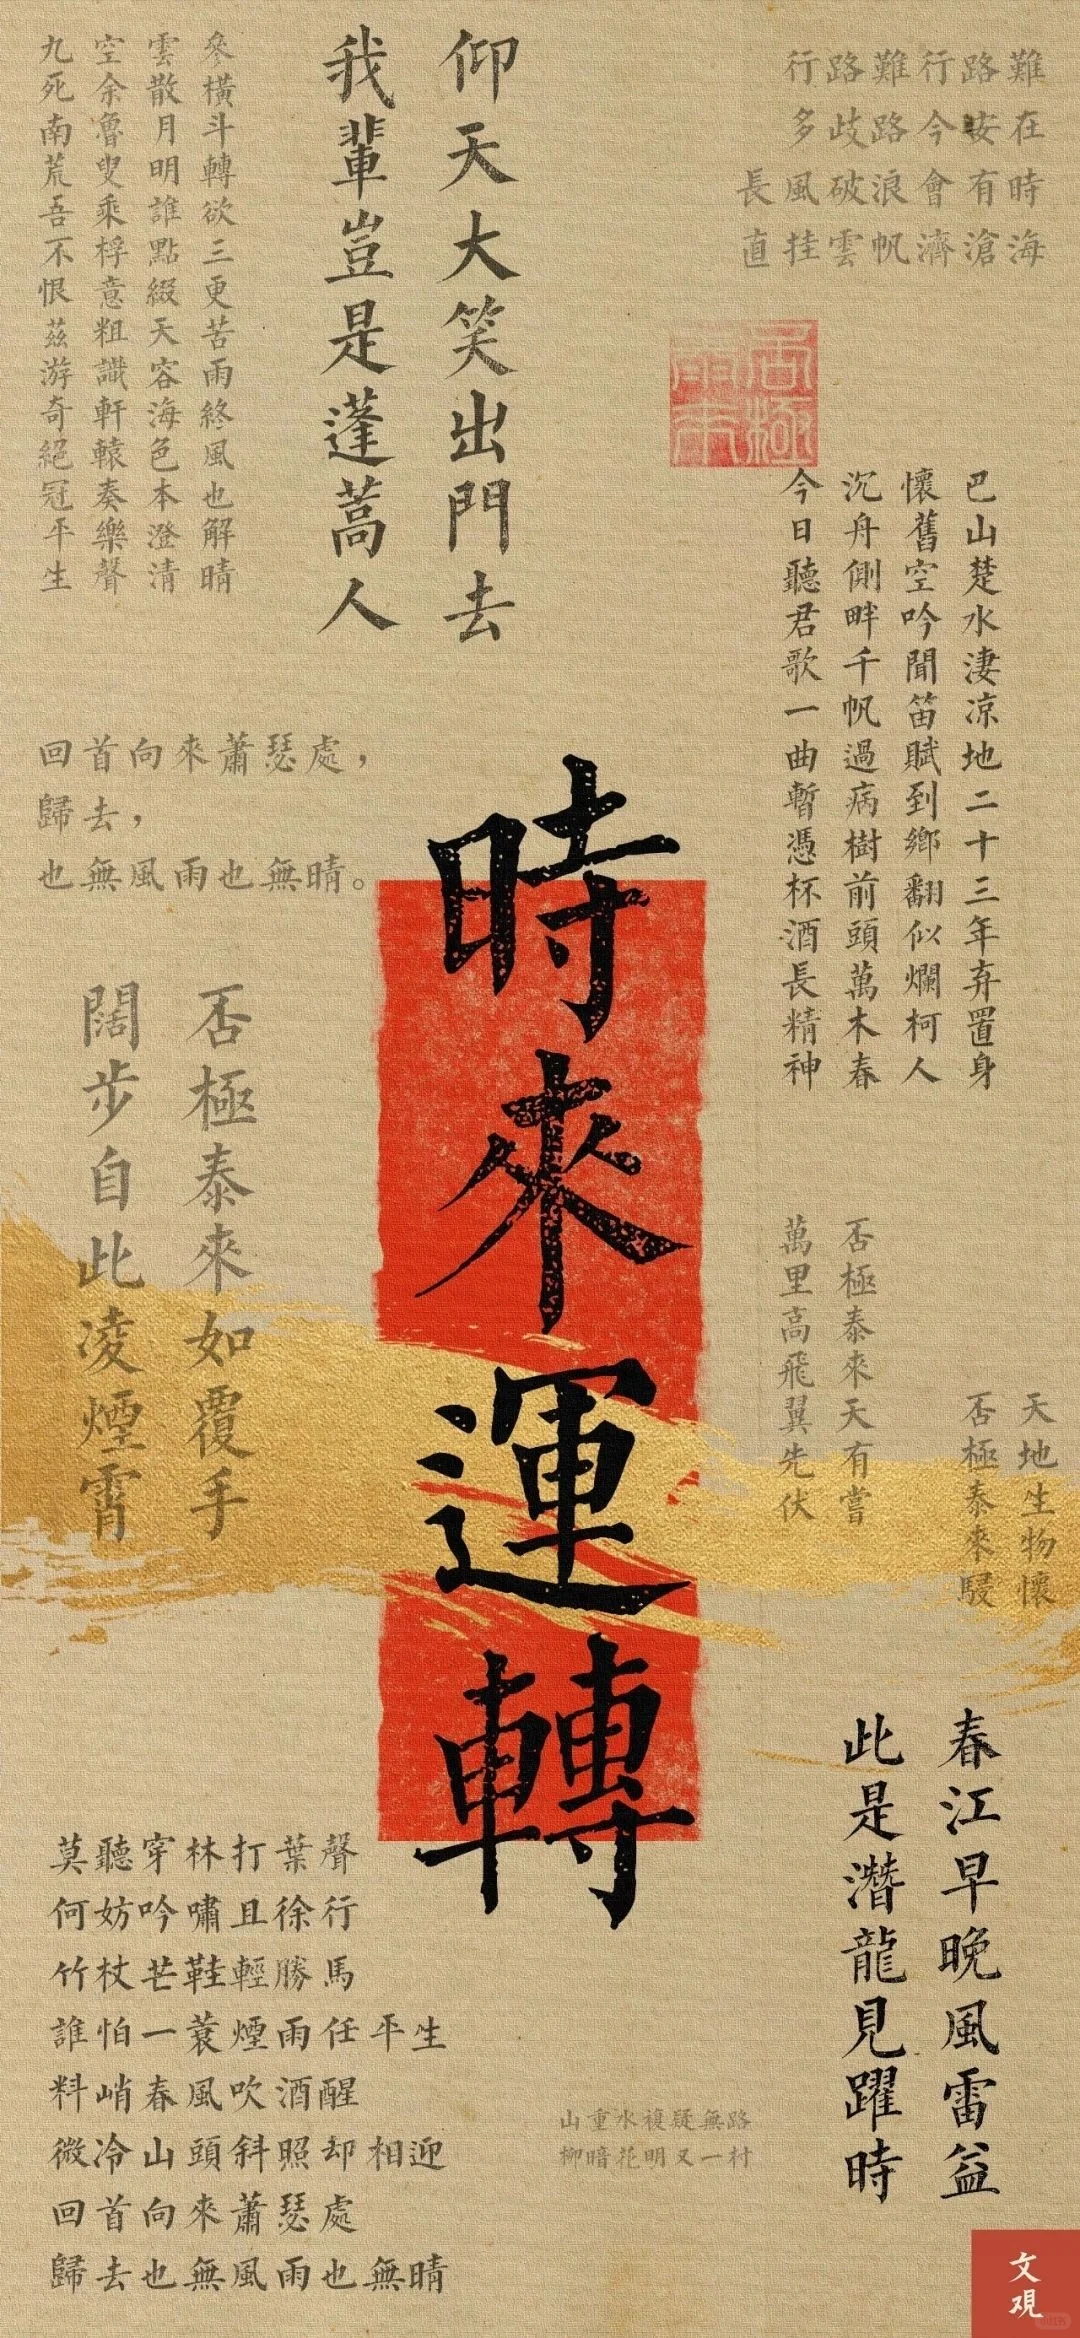 行路難行路難
多歧路今安在
長風破浪會有時
直挂雲帆濟滄海
仰天大笑出門去
我輩豈是蓬蒿人
參橫斗轉欲三更苦雨終風也解晴
雲散月明誰點綴天容海色本澄清
空余魯叟乘桴意粗識軒轅奏樂聲
九死南荒吾不恨茲游奇絕冠平生
巴山楚水淒涼地二十三年弃置身
懷舊空吟聞笛賦到鄉翻似爛柯人
沉舟側畔千帆過病樹前頭萬木春
今日聽君歌一曲暫憑杯酒長精神
回首向來蕭瑟處，
歸去，
也無風雨也無晴。
時來運轉
否極泰來如覆手
闊步自此凌煙霄
否極泰來天有嘗
萬里高飛翼先伏
天地生物懷
否極泰來駸
春江早晚風雷益
此是潛龍見躍時
莫聽穿林打葉聲
何妨吟嘯且徐行
竹杖芒鞋輕勝馬
誰怕一蓑煙雨任平生
料峭春風吹酒醒
微冷山頭斜照却相迎
回首向來蕭瑟處
歸去也無風雨也無晴
山重水複疑無路
柳暗花明又一村
文观